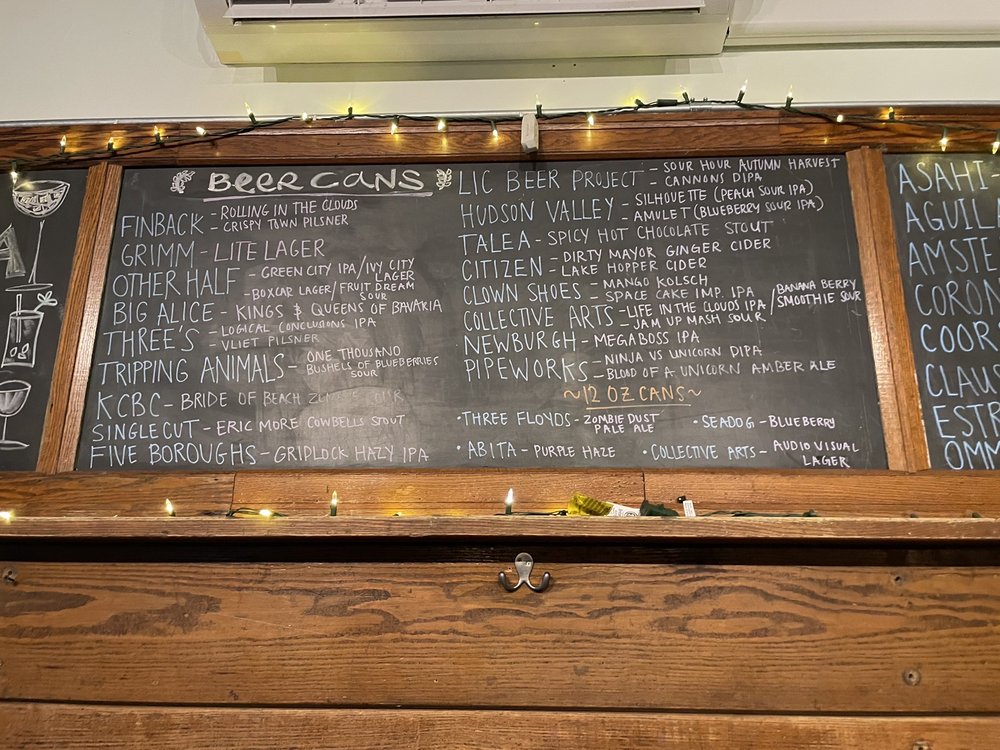 BEER CANS
FINBACK - ROLLING IN THE CLOUDS
- CRISPY TOWN PILSNER
GRIMM - LITE LAGER
OTHER HALF - GREEN CITY IPA/IVY CITY LAGER
- BOXCAR LAGER/FRUIT DREAM SOUR
BIG ALICE - KINGS & QUEENS OF BAVARIA
THREE'S - LOGICAL CONCLUSIONS IPA
- VLIET PILSNER
TRIPPING ANIMALS - ONE THOUSAND
BUSHELS OF BLUEBERRIES
SOUR
KCBC - BRIDE OF BEACH
SINGLECUT - ERIC MORE COWBELL STOUT
FIVE BOROUGHS - GRIDLOCK HAZY IPA
LIC BEER PROJECT - SOUR HOUR AUTUMN HARVEST
- CANNONS DIPA
HUDSON VALLEY - SILHOUETTE (PEACH SOUR IPA)
- AMULET (BLUEBERRY SOUR IPA)
TALEA - SPICY HOT CHOCOLATE STOUT
CITIZEN - DIRTY MAYOR GINGER CIDER
- LAKE HOPPER CIDER
CLOWN SHOES - MANGO KOLSCH
- SPACE CAKE IMP. IPA
COLLECTIVE ARTS - LIFE IN THE CLOUDS IPA / BANANA BERRY SMOOTHIE SOUR
- JAM UP MASH SOUR
NEWBURGH - MEGABOSS IPA
PIPEWORKS - NINJA VS UNICORN DIPA
- BLOOD OF A UNICORN AMBER ALE
~12 OZ CANS~
• THREE FLOYDS - ZOMBIE DUST PALE ALE
• SEADOG - BLUEBERRY
• ABITA - PURPLE HAZE
• COLLECTIVE ARTS - AUDIO VISUAL LAGER
ASAHI-
AGUIL
AMSTE
CORON
COOR
CLAUS
ESTR
OMM